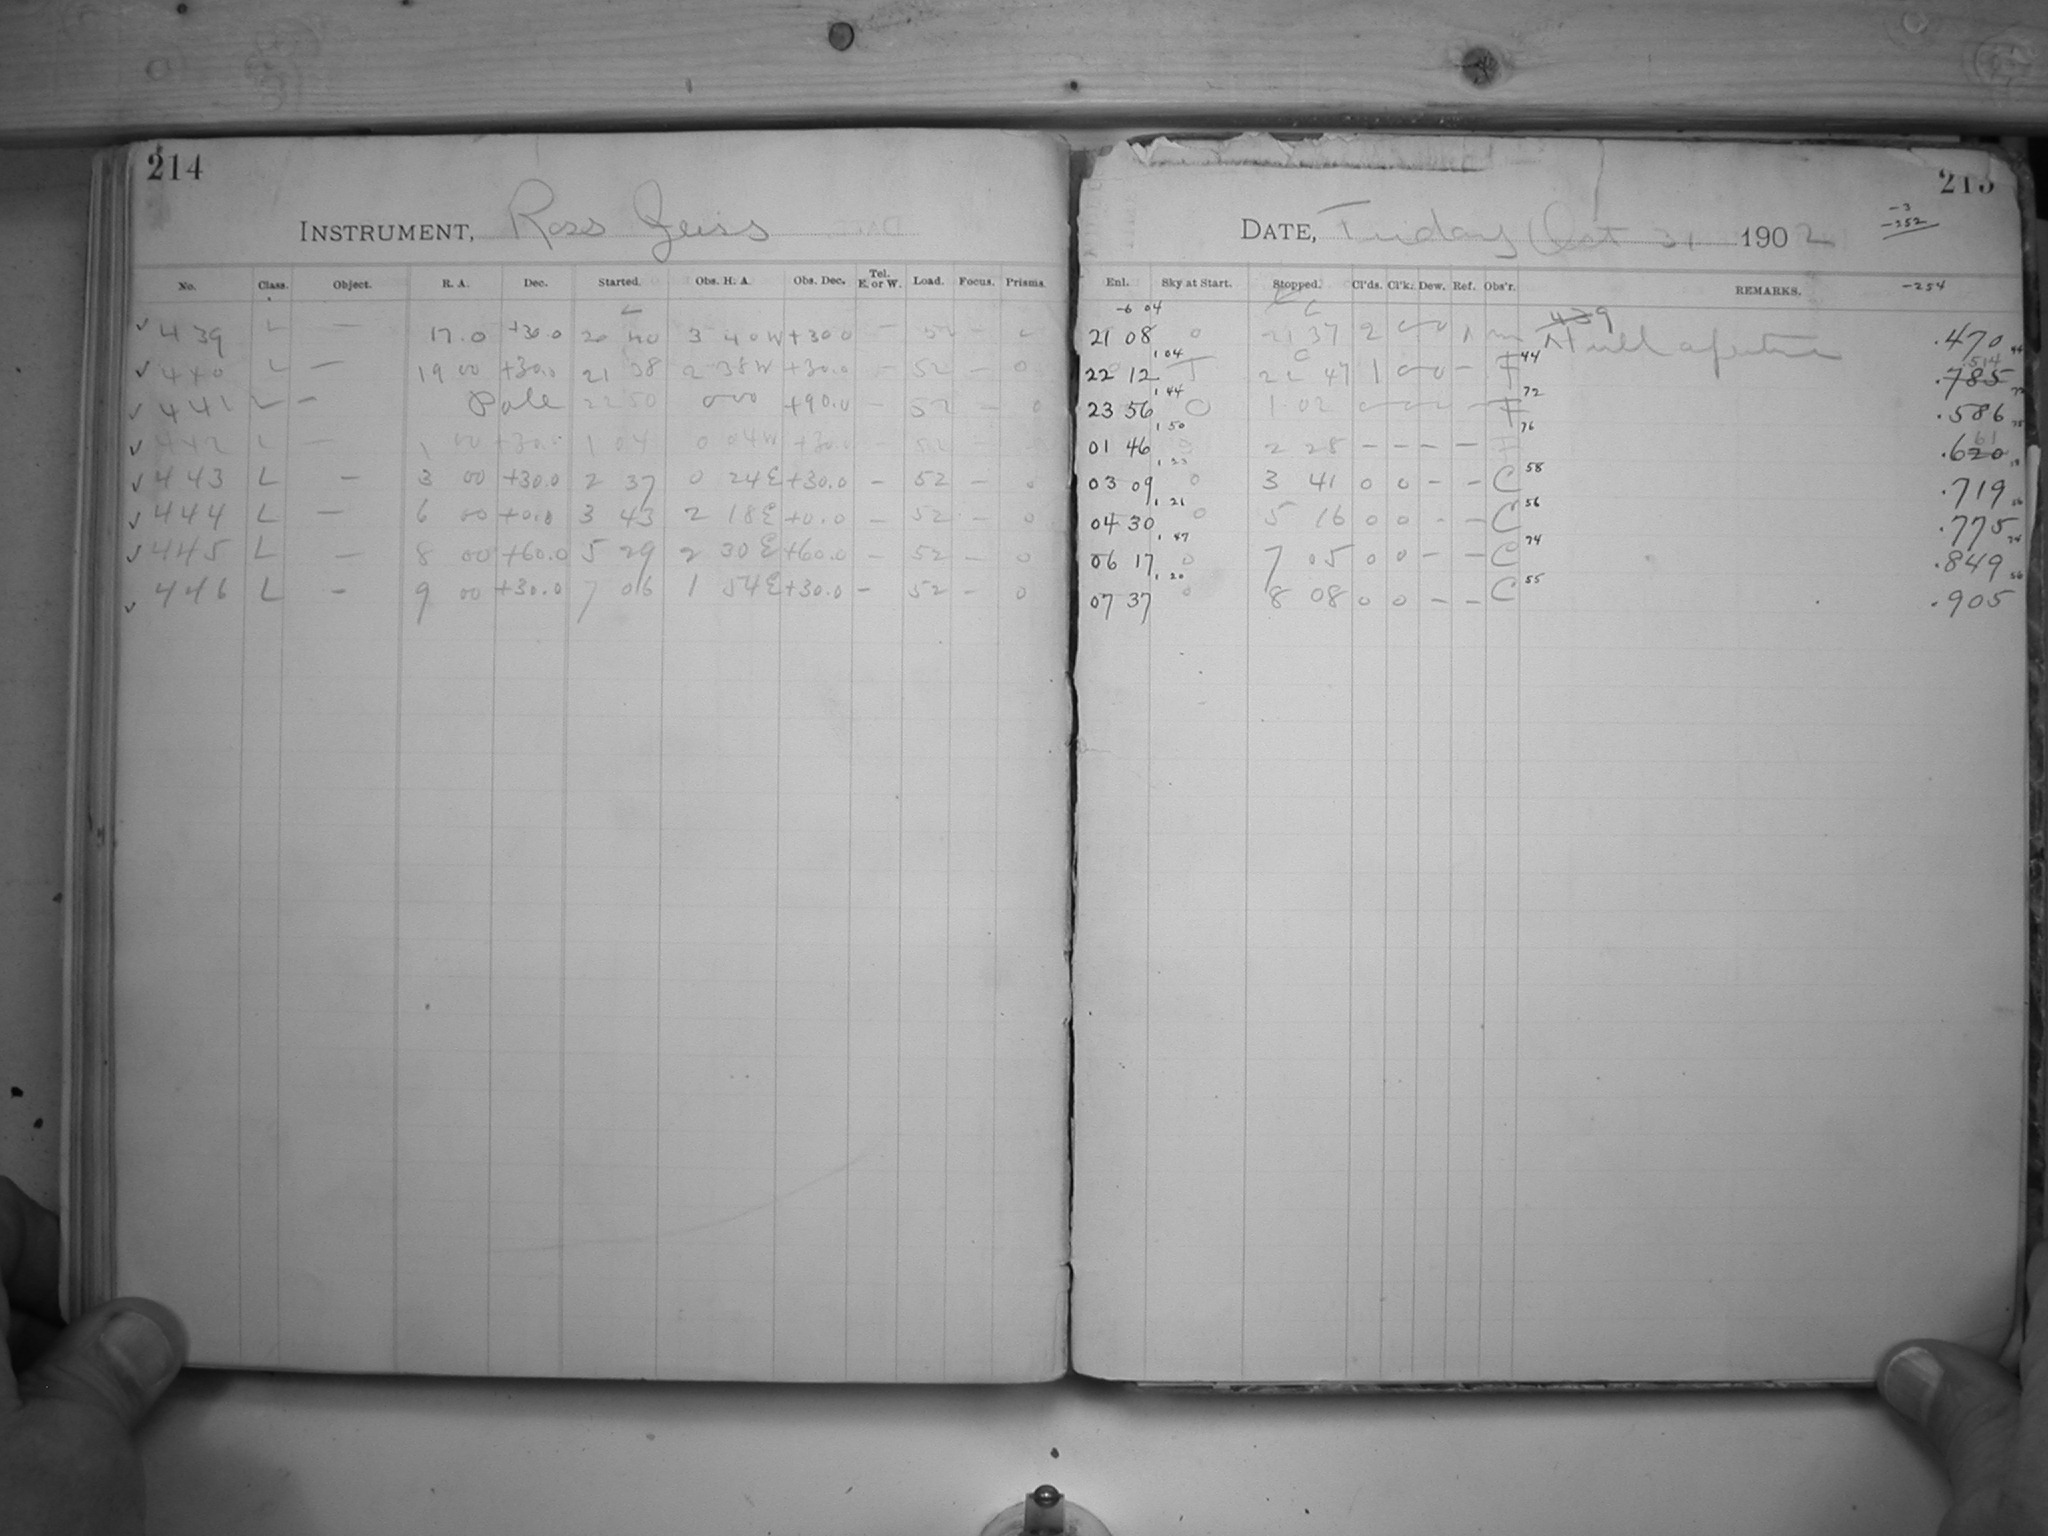 214
INSTRUMENT, Ross Zeiss
No. Class. Object. R. A. Dec. Started. Obs. H. A. Obs. Dec. Tel. E. or W. Load. Focus. Prisms.
439 L — 17.0 +30.0 20 40 3 40 W +30.0 — 52 — 0
440 L — 19 00 +30.0 21 38 2 38 W +30.0 — 52 — 0
441 L — Pole 22 50 0 00 +90.0 — 52 — 0
442 L — 1 00 +30.0 1 04 0 04 W +30.0 — 52 — 0
443 L — 3 00 +30.0 2 37 0 24 E +30.0 — 52 — 0
444 L — 6 00 +0.0 3 43 2 18 E +0.0 — 52 — 0
445 L — 8 00 +60.0 5 29 2 30 E +60.0 — 52 — 0
446 L — 9 00 +30.0 7 06 1 54 E +30.0 — 52 — 0
215
DATE, Friday Oct 31 1902
-3
-252
Enl. Sky at Start. Stopped. Cl'ds. Cl'k. Dew. Ref. Obs'r. REMARKS. -254
-6 04
439
21 08 0 21 37 2 0 0 1 m Full aperture .470
1 04 44 44
22 12 22 47 1 0 0 — F .785 .514
1 44 72 72
23 56 0 1 02 F .586
1 50 76 75
01 46 2 28 — — — — F .620 61
58
03 09 0 3 41 0 0 — — C .719
1 21 56 56
04 30 0 5 16 0 0 — — C .775
1 47 74 74
06 17 0 7 05 0 0 — — C .849
1 20 55 56
07 37 0 8 08 0 0 — — C .905